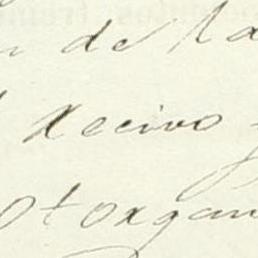 de la
Recivo
otorgan